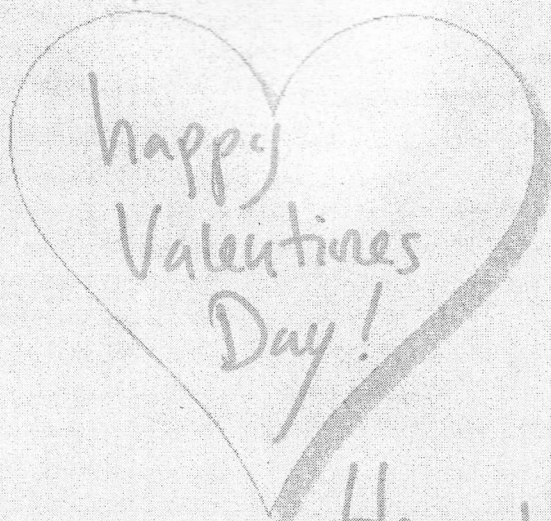 happy
Valentines
Day!